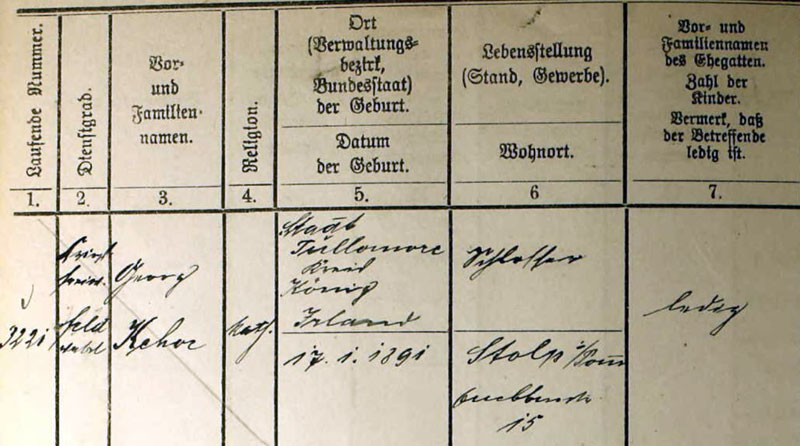 Laufende Nummer.
Dienstgrad.
Vor-
und
Familien-
namen.
Religion.
Ort
(Verwaltungs-
bezirk,
Bundesstaat)
der Geburt.
Datum
der Geburt.
Lebensstellung
(Stand, Gewerbe).
Wohnort.
Vor- und
Familiennamen
des Ehegatten.
Zahl der
Kinder.
Vermerk, daß
der Betreffende
ledig ist.
1. 2. 3. 4. 5. 6 7.
3221
Georg
Kehoe
kath.
Stadt
Tullamore
Kreis
König
Irland
17. 1. 1891
Schlosser
Stolp i/Pom
15
ledig